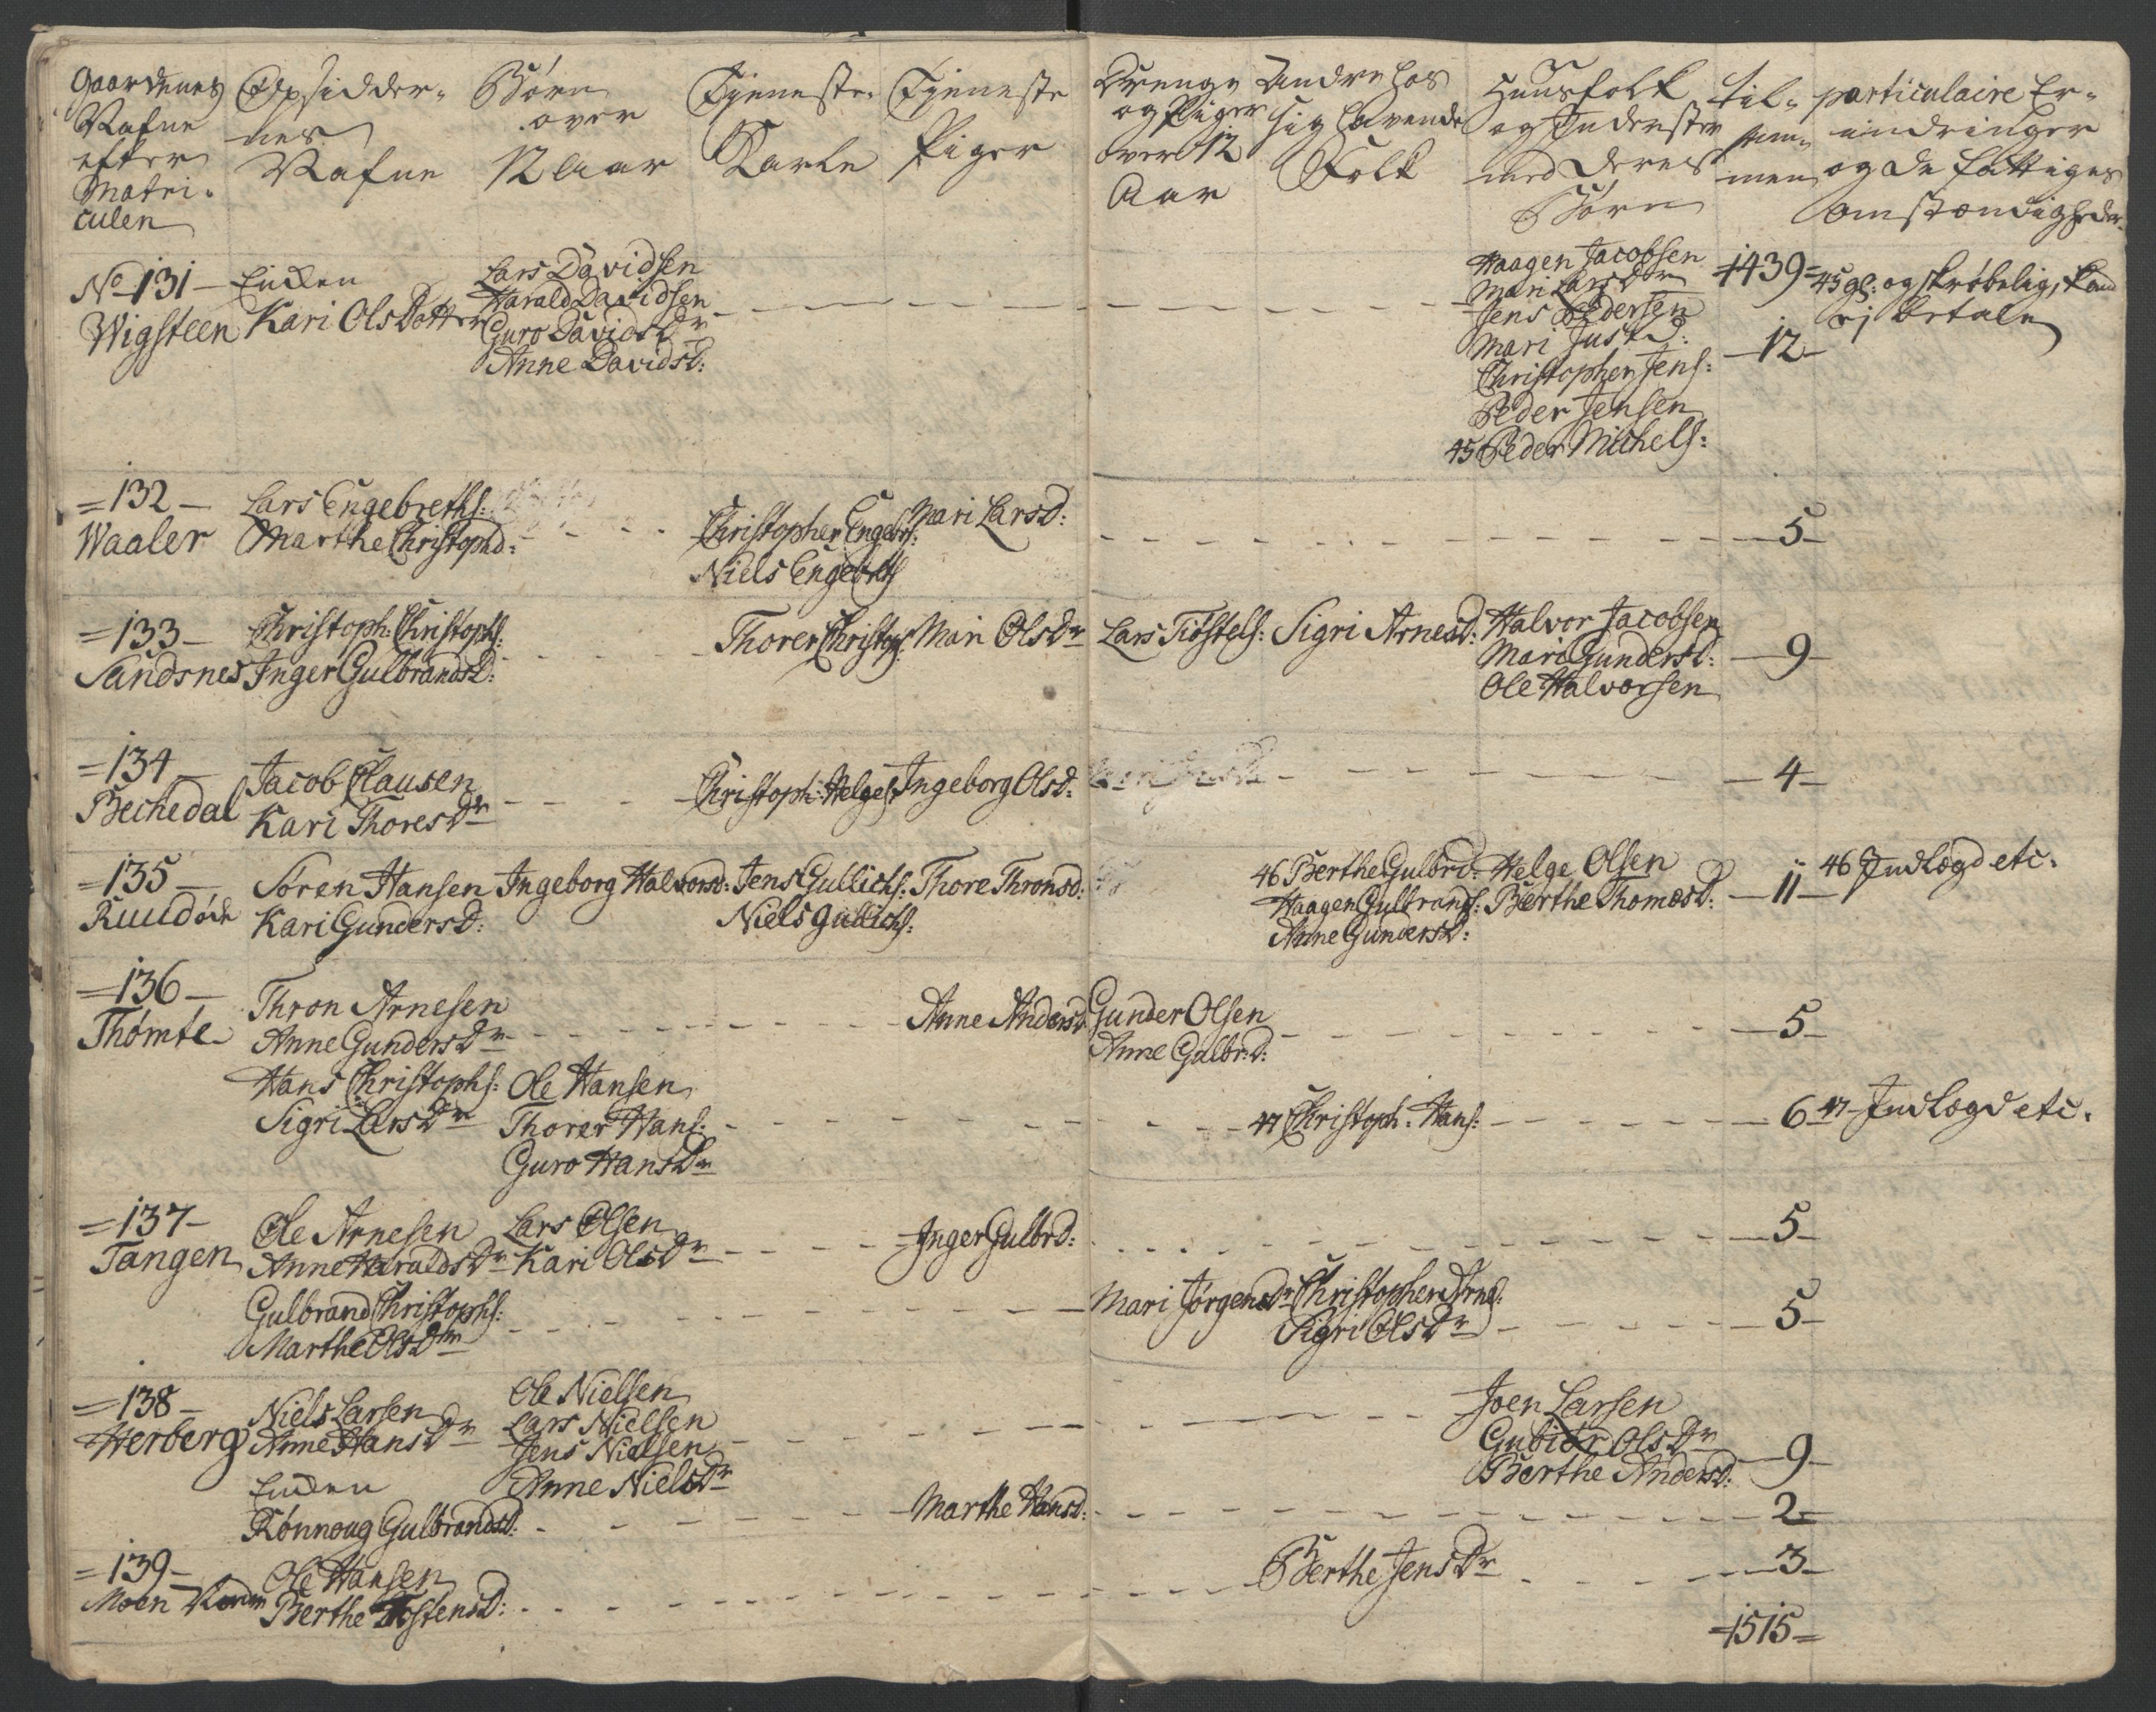 Gaardenes Nafne efter Matriculen
Opsiddernes Nafne
Børn over 12 Aar
Tieneste Karle
Tieneste Piger
Drenge og Piger over 12 Aar
Andre hos sig havende Folk
Huusfolk og Inderster med deres Børn
Tilsammen
particulaire Erindringer og de fattiges omstændigheder
No 131 Wigsteen
Enken
Kari OlsDatter
Lars Davidsen
Harald Davidsen
Guro DavidsDr
Anne Davidsd:
Haagen Jacobsen
Mari LarsDr
Jens Pedersen
Mari Justd:
Christopher Jens:
Peder Jensen
45 Peder Michels:
=1439=
12
45 gl: og skrøbelig, kand
ej betale
=132 Waaler
Lars Engebreths:
Marthe Christophd:
Christopher Engebr:
Niels Engebrts
Mari Larsd:
5
=133 Sandsnes
Christoph: Christophs:
Inger Gulbrandsd:
Thorer Christops
Mari OlsDr
Lars Tiøstels:
Sigri Arnesd:
Halvor Jacobsen
Mari Gundersd:
Ole Halvorsen
9
=134 Bechedal
Jacob Clausen
Kari ThoresDr
Christoph: Helges:
Ingeborg Olsd:
4
=135
Søren Hansen
Kari Gundersd:
Ingeborg Halvorsd:
Jens Gullichs:
Niels Gullichs:
Thore Thronsd:
46 Berthe Gulbrd:
Haagen Gulbrands:
Anne Gundersd:
Helge Olsen
Berthe Thomesd:
11
46 Indlægd etc.
=136 Thømte
Thron Arnesen
Anne GundersDr
Anne Andersd
Gunder Olsen
Anne Gulbr:d:
5
Hans Christophs:
Sigri LarsDr
Ole Hansen
Thorer Hans:
Guro HansDr
47 Christoph: Hans:
6
47 Indlægd etc.
=137 Tangen
Ole Arnesen
Anne HaraldsDr
Lars Olsen
Kari OlsDr
Inger Gulbrd:
5
Gulbrand Christophs:
Marthe OlsDr
Mari JørgensDr
Christopher Arnes:
Sigri OlsDr
5
=138 Herberg
Niels Larsen
Anne HansDr
Ole Nielsen
Lars Nielsen
Jens Nielsen
Anne NielsDr
Joen Larsen
Gubiør OlsDr
Berthe Andersd:
9
Enken
Rønnoug Gulbrandsd:
Marthe Hansd:
2
=139 Moen
Ole Hansen
Berthe Tostensd:
Berthe JensDr
3
=1515=